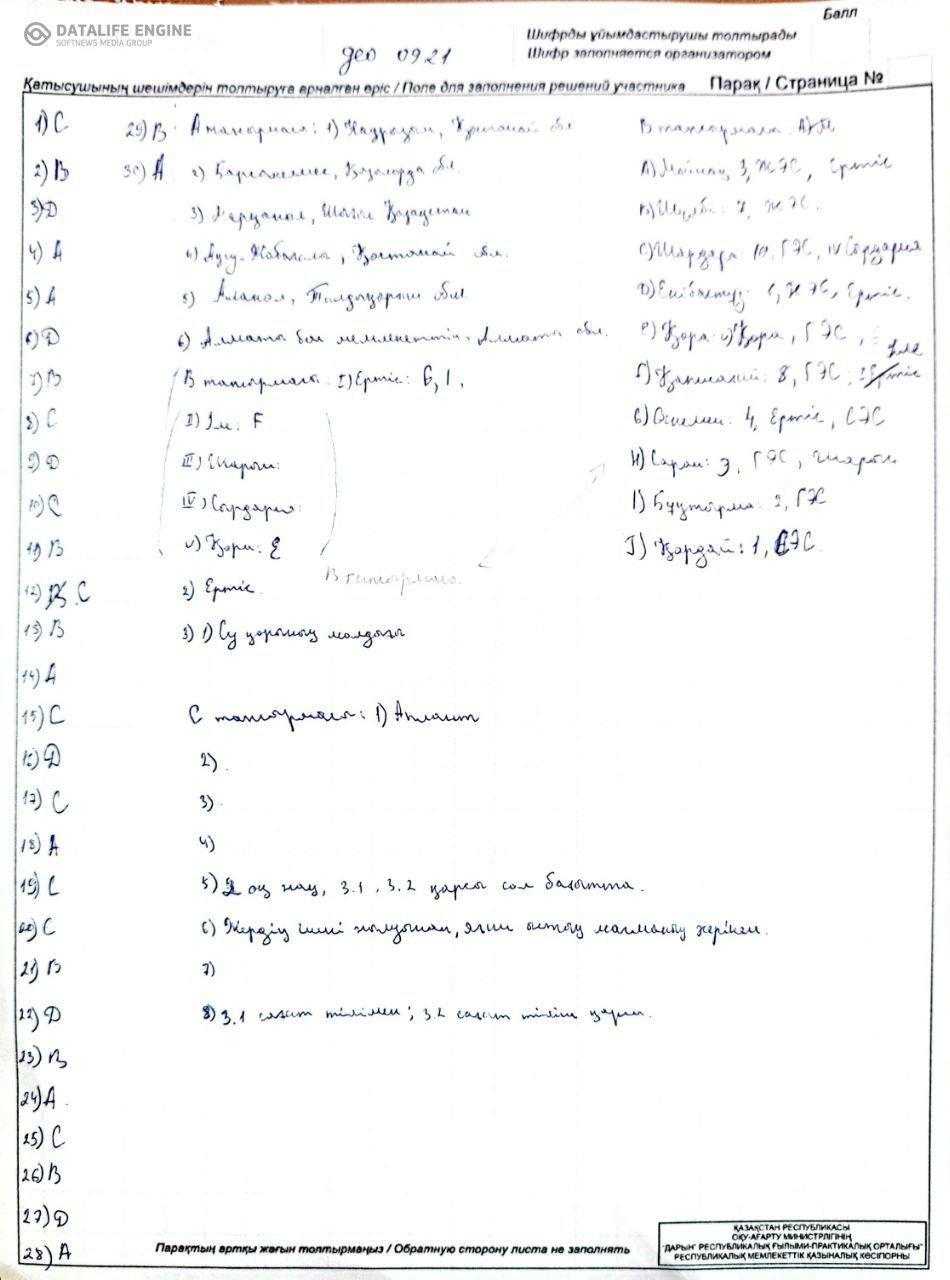 DATALIFE ENGINE
SOFTNEWS MEDIA GROUP
Балл
Шифрды ұйымдастырушы толтырады
Шифр заполняется организатором
geo 0921
Қатысушының шешімдерін толтыруға арналған өріс / Поле для заполнения решений участника
Парақ / Страница №
1) C
2) B
3) D
4) A
5) A
6) D
7) B
8) C
9) D
10) C
11) B
12) C
13) B
14) A
15) C
16) D
17) C
18) A
19) C
20) C
21) B
22) D
23) B
24) A
25) C
26) B
27) D
28) A
29) B
30) A
А тапсырмасы: 1) Наурызым, Қостанай обл
2) Барсакелмес, Қызылорда обл.
3) Марқакөл, Шығыс Қазақстан
4) Қостанай обл.
5) Алакөл, Талдықорған обл
6) Алматы, Алматы обл.
В тапсырмасы: I) Ертіс: G, I.
II) Іле: F
III) Шарын:
IV) Сырдария:
V) Қора: E
В тапсырма
2) Ертіс.
3) 1) Су қорының молдығы
С тапсырмасы: 1)
2).
3).
4)
5) 2 оң жақ, 3.1, 3.2 қарсы сол бағытта.
6) Жердің ішкі
7)
8) 3.1 сағат тілімен; 3.2 сағат тіліне қарсы.
В тапсырмасы
A) 3, ЖЭС, Ертіс
B) 7, ЖЭС.
C) Шардара 10, ГЭС, IV Сырдария
D) Екібастуз: ЖЭС, Ертіс.
E) Қора: v) Қора, ГЭС
Іле
F) Қапшағай: 8, ГЭС,
G) Өскемен: 4, Ертіс, СЭС
H) ГЭС, Шарын
I) Бұқтырма: 2, ГЭС
J) Қордай: 1,
Парақтың артқы жағын толтырмаңыз / Обратную сторону листа не заполнять
ҚАЗАҚСТАН РЕСПУБЛИКАСЫ
ОҚУ-АҒАРТУ МИНИСТРЛІГІНІҢ
"ДАРЫН" РЕСПУБЛИКАЛЫҚ ҒЫЛЫМИ-ПРАКТИКАЛЫҚ ОРТАЛЫҒЫ"
РЕСПУБЛИКАЛЫҚ МЕМЛЕКЕТТІК ҚАЗЫНАЛЫҚ КӘСІПОРНЫ